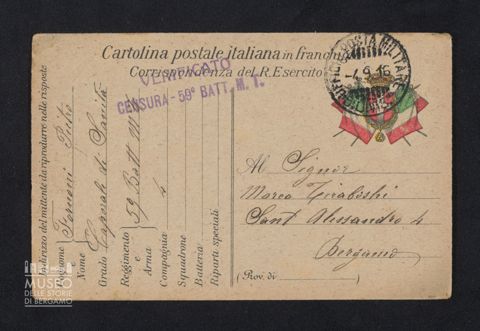 Cartolina postale italiana in franchi
Corrispondenza del R. Esercito
VERIFICATO
CENSURA - 59° BATT. M. T.
POSTA MILITARE
-4.9.16
Indirizzo del mittente da riprodurre nelle risposte
Cognome e Nome
Pietro
Grado Caporale di Sanità
Reggimento e Arma 59 Batt M.T.
Compagnia 4
Squadrone
Batteria
Riparti speciali
Al Signor
Marco Tiraboschi
Sant Alessandro 4
Bergamo
(Prov. di
MUSEO
DELLE STORIE
DI BERGAMO